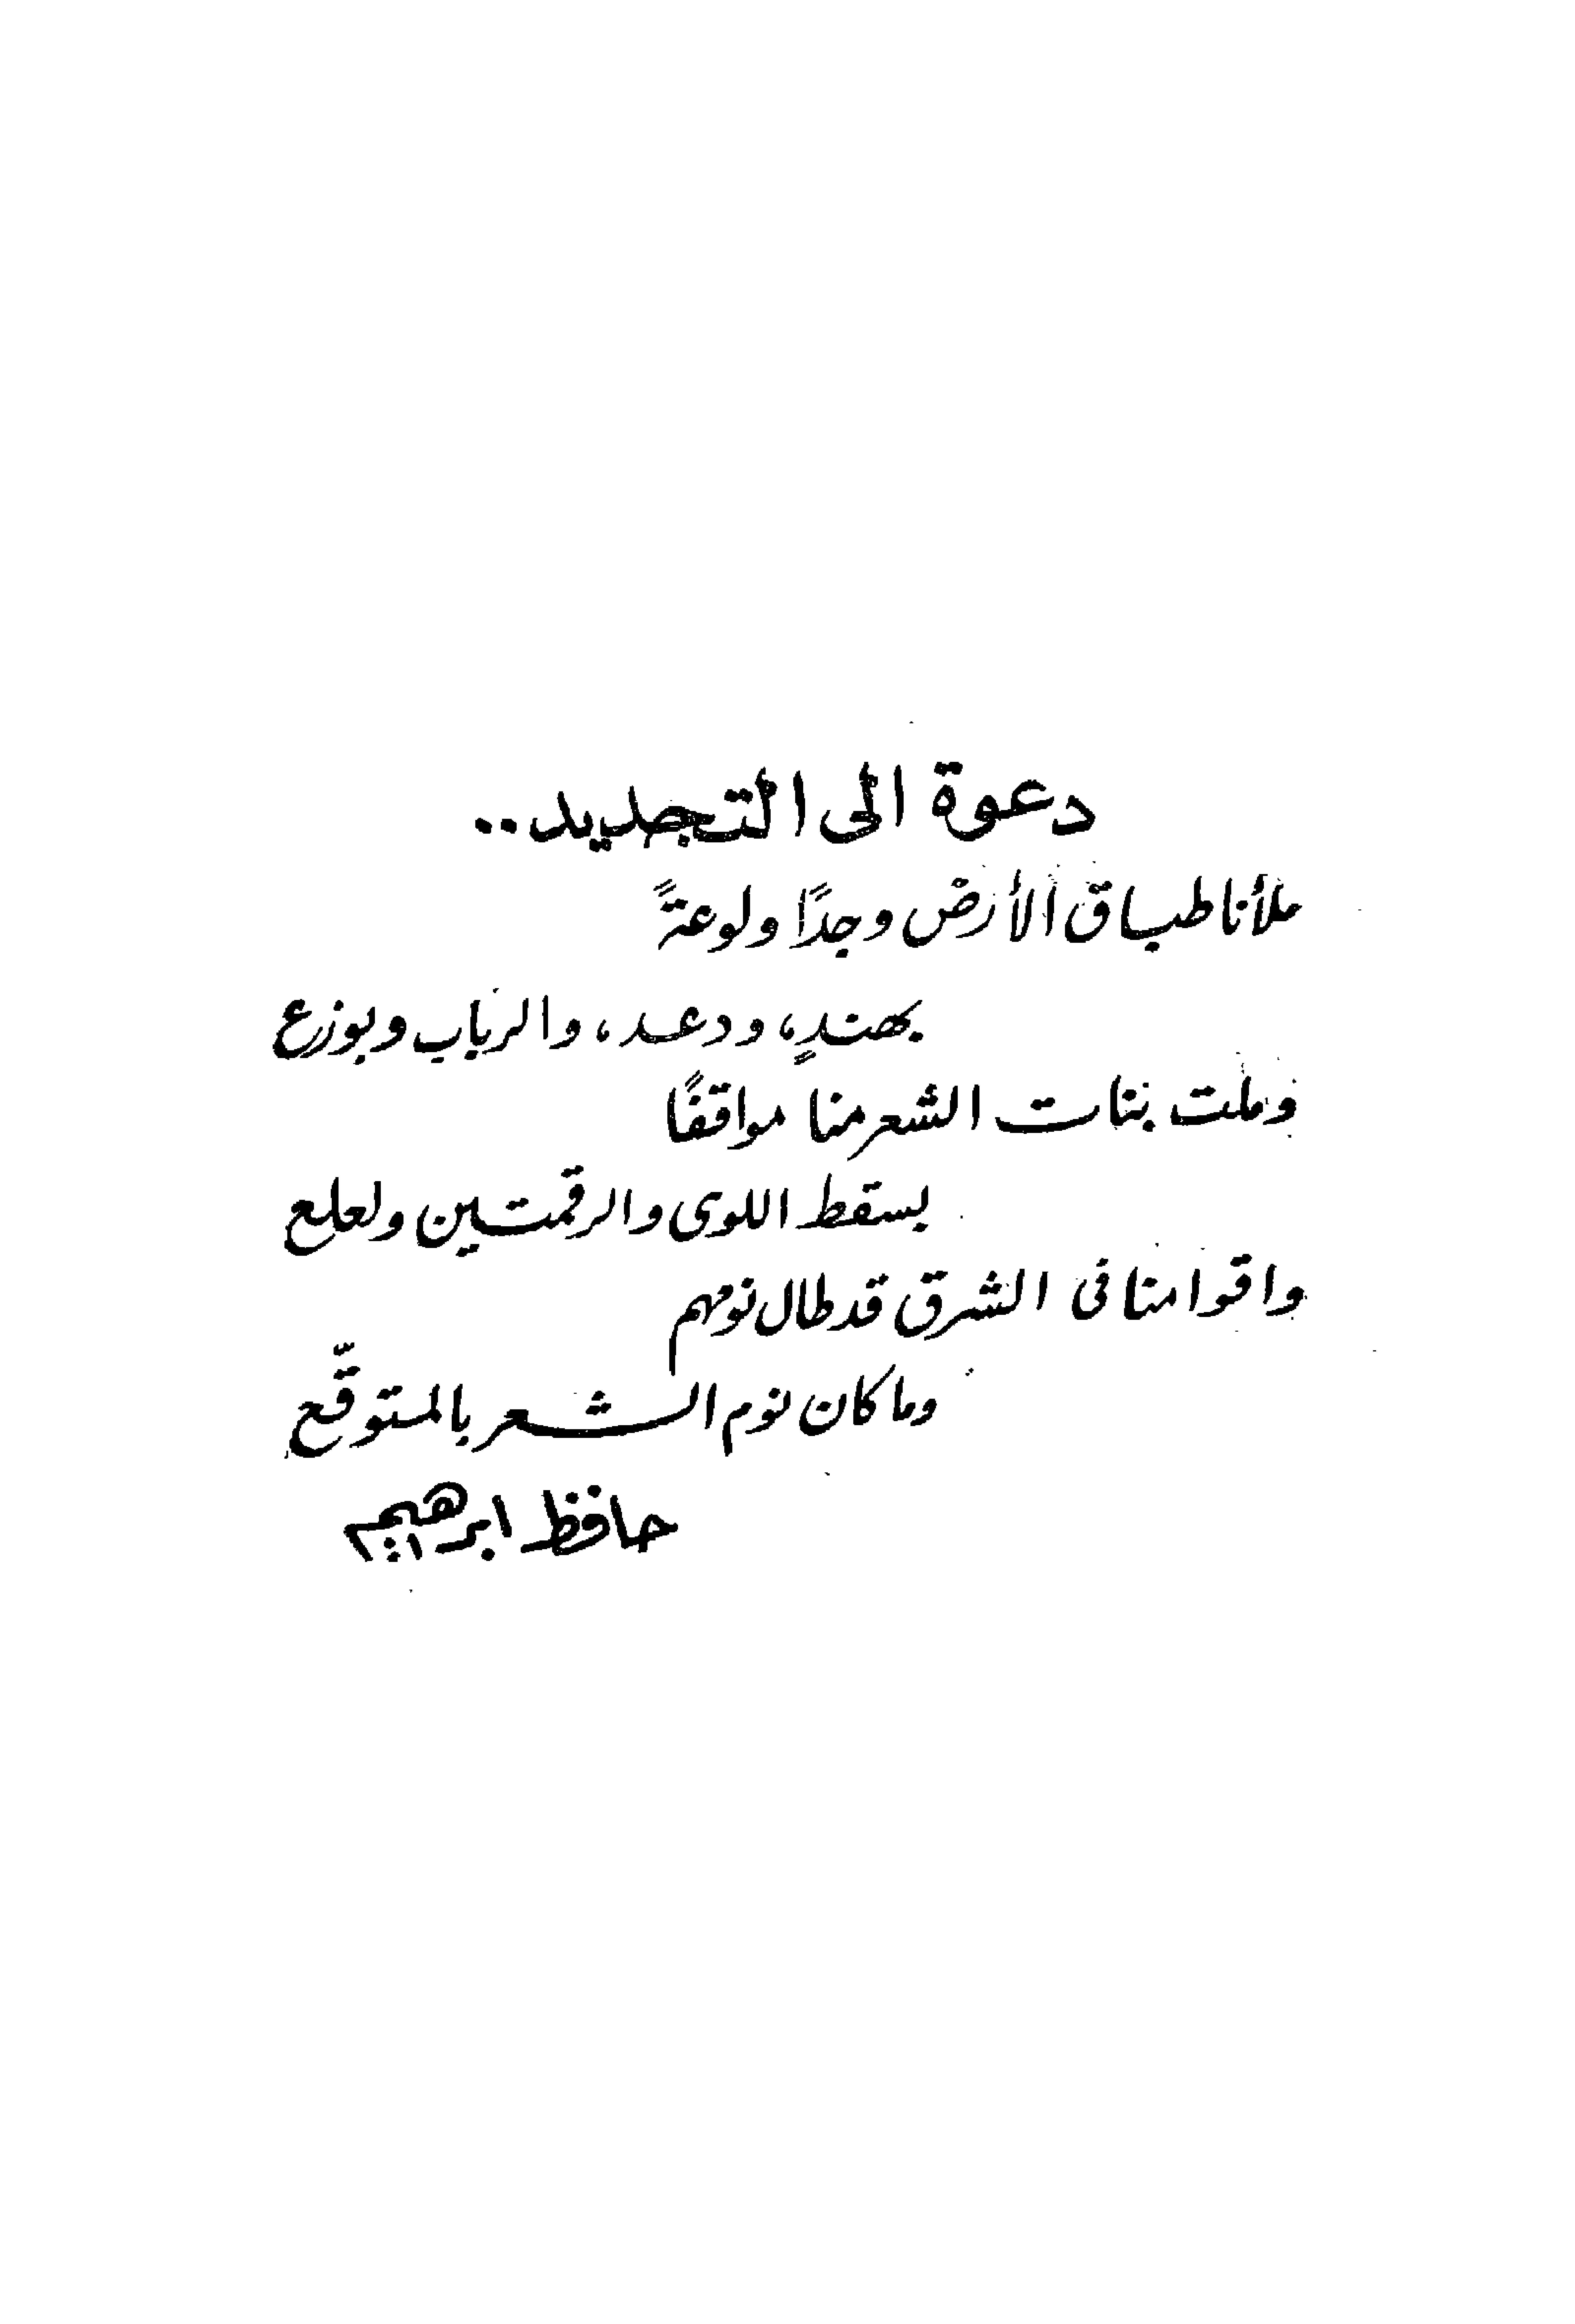 دعوة الى التجديد..
ملأنا طباق الأرض وجدًا ولوعةً
بهندٍ، ودعد، والرباب وبوزع
وملت بنات الشعر منا مواقفًا
بسقط اللوى والرقمتين ولعلع
واقوامنا فى الشرق قد طال نومهم
وما كان نوم الشعر بالمتوقّع
حافظ ابرهيم